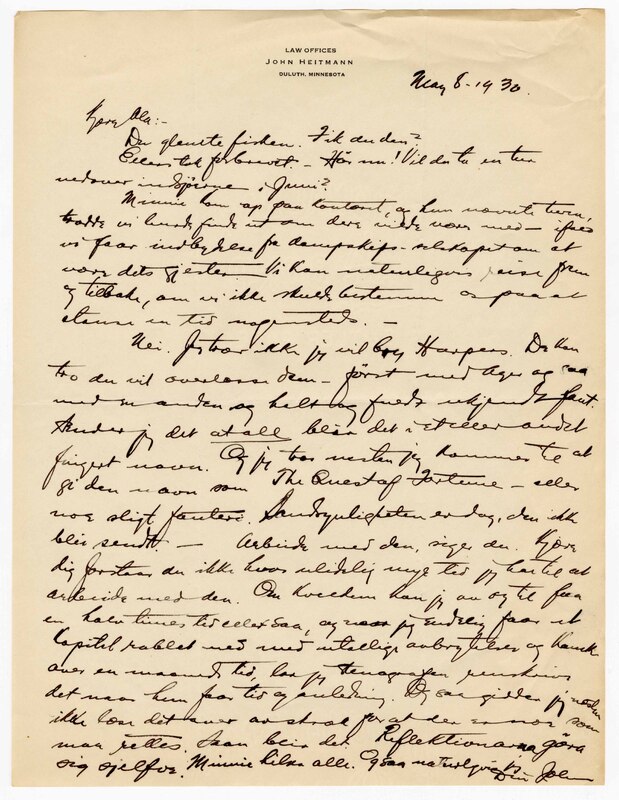 LAW OFFICES
JOHN HEITMANN
DULUTH, MINNESOTA
May 8 - 1930.
Kjære Ola:-
Du glemte fisken. Fik du den?
Ellers tak for brevet. - Hør nu! Vil du ta en tur
nedover indsjøerne i Juni?
Minnie kom op paa kontoret, og hun nævnte turen,
trodde vi burde finde ut om dere vilde være med -
vi faar indbydelse fra dampskips-selskapet om at
være dets gjester. Vi kan naturligvis reise frem
og tilbake, om vi ikke skulde bestemme os paa at
stanse en tid nogensteds. -
Nei. Jeg tror ikke jeg vil Harpers. De kan
tro du vil overlesse dem - først med Ager og saa
med en anden og helt ukjendt fant.
Sender jeg det at all blir det i et eller andet
fingert navn. Og jeg tror næsten jeg kommer til at
gi den navn som The Quest of Fortune - eller
noe sligt fanteri. Sandsynligheten er dog, den ikke
blir sendt. - Arbeide med den, siger du. Kjære
dig forstaar du ikke hvor ulidelig mye tid jeg har til at
arbeide med den. Om kvelden kan jeg av og til faa
en halv times tid eller saa, og naar jeg endelig faar et
kapitel rablet ned med utallige avbrytelser og kanske
over en maaneds tid, lar jeg stenografen renskrive
det naar hun faar tid og anledning. Og saa gidder jeg næsten
ikke læse det over av skræk for at der er noe som
maa rettes. Saan blir det. Reflektionerna göra
sig sjelfva. Minnie hilser alle. Ogsaa naturligvis
Din John